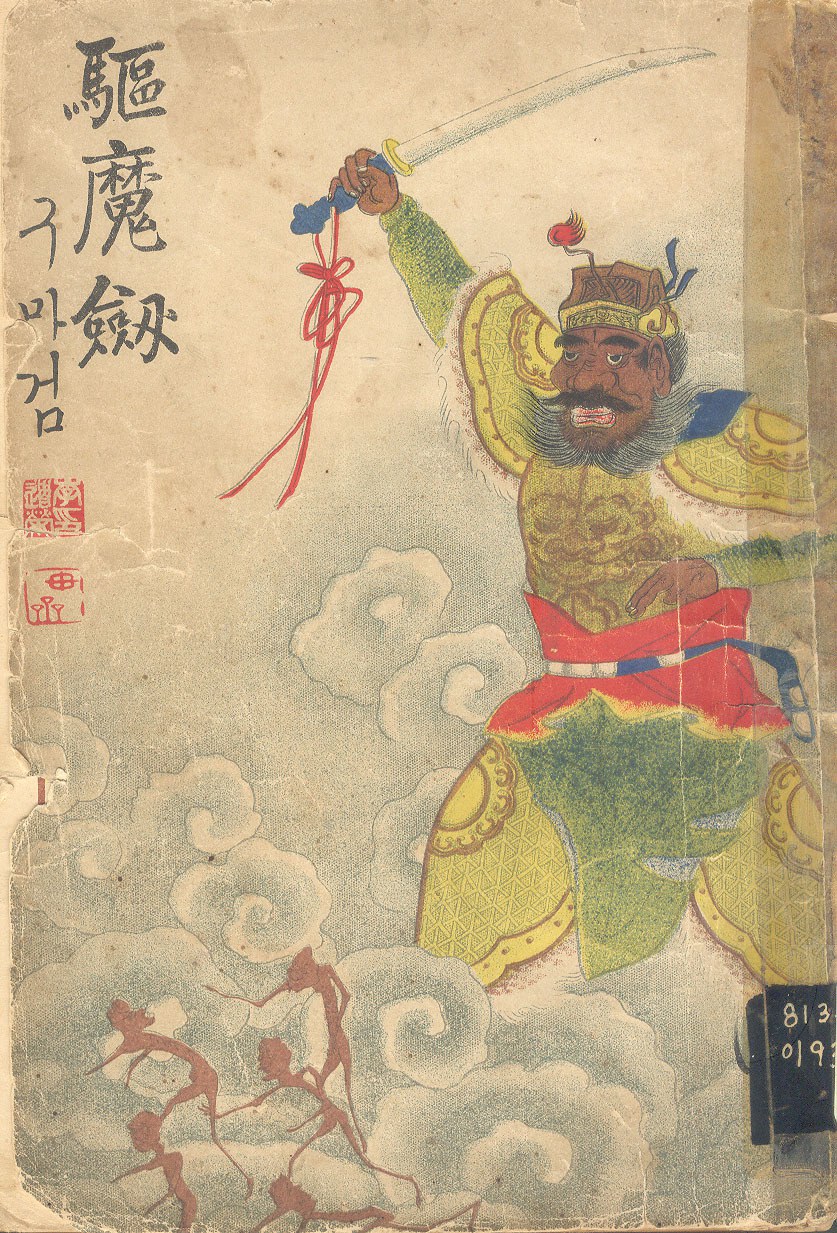 驅魔劒
구마검
813
019